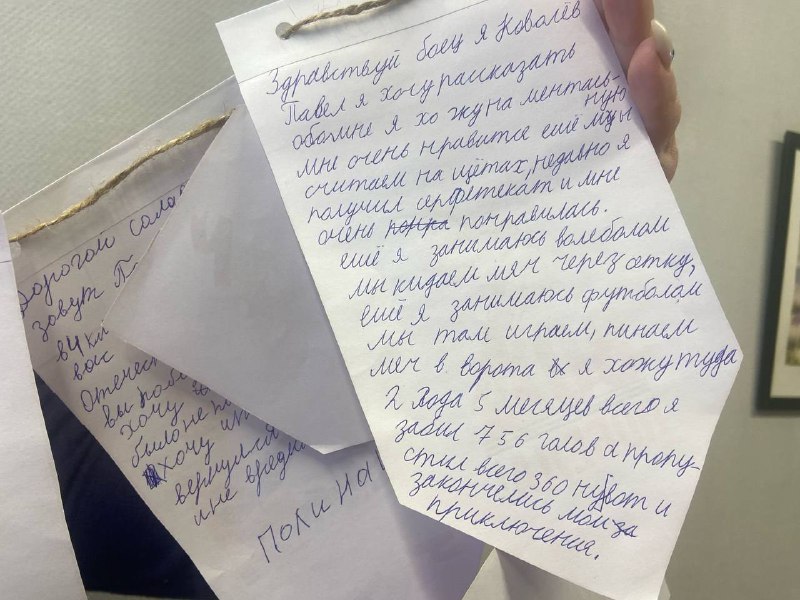 Здравствуй боец я Ковалёв
Павел я хочу рассказать
обомне я хо жу на менталь-
ную
мне очень нравится ешё мы
считаем на щётах, недавно я
получил серфетекат и мне
очень понравилась.
ешё я занимаюсь волеболам
мы кидаем мяч через сетку,
ешё я занимаюсь футболам
мы там играем, пинаем
мяч в ворота я хожу туда
2 года 5 месяцев всего я
забил 756 голов а пропу-
стил всего 360 ну вот и
закончелись мои
приключения.
Дорогой солда
зовут П
в 4 кл
вас
Отечест
вы поб
хочу
было не п
хочу
вернулся
и не вреди
Полина